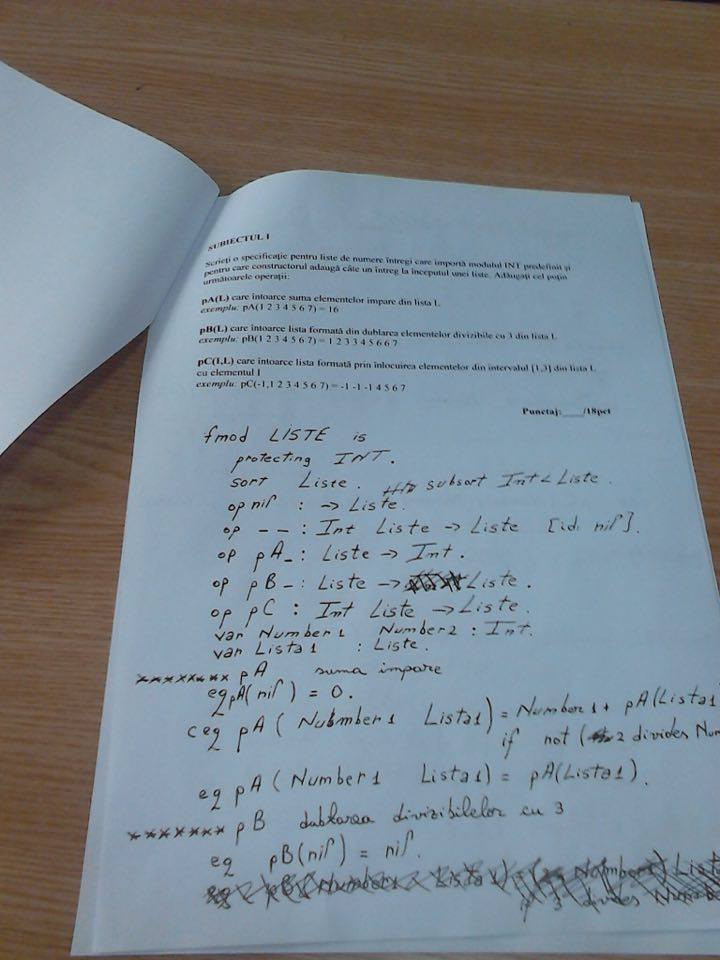 SUBIECTUL I
Scrieți o specificație pentru liste de numere întregi care importă modulul INT predefinit și
pentru care constructorul adaugă câte un întreg la începutul unei liste. Adăugați cel puțin
următoarele operații:
pA(L) care întoarce suma elementelor impare din lista L
exemplu: pA(1 2 3 4 5 6 7) = 16
pB(L) care întoarce lista formată din dublarea elementelor divizibile cu 3 din lista L
exemplu: pB(1 2 3 4 5 6 7) = 1 2 3 3 4 5 6 6 7
pC(I,L) care întoarce lista formată prin înlocuirea elementelor din intervalul [1,3] din lista L
cu elementul I
exemplu: pC(-1,1 2 3 4 5 6 7) = -1 -1 -1 4 5 6 7
Punctaj:____/18pct
fmod LISTE is
protecting INT.
sort Liste. subsort Int < Liste.
op nil : -> Liste.
op _ _ : Int Liste -> Liste [id: nil].
op pA_ : Liste -> Int.
op pB_ : Liste -> Liste.
op pC : Int Liste -> Liste.
var Number1 Number2 : Int.
var Lista1 : Liste.
******** pA suma impare
eq pA(nil) = 0.
ceq pA ( Nubmber1 Lista1) = Number1 + pA(Lista1
if not (2 divides Num
eq pA (Number1 Lista1) = pA(Lista1).
******* pB dublarea divizibilelor cu 3
eq pB(nil) = nil.